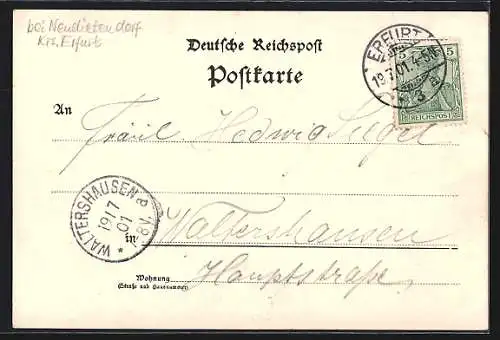 bei Neudietendorf
Krs. Erfurt
Deutsche Reichspost
Postkarte
ERFURT
19.7.01.4-5N
3
5
REICHSPOST
An
Fräul. Hedwig
WALTERSHAUSEN
19/7
01
8V.
in Waltershausen
Wohnung
(Straße und Hausnummer)
Hauptstraße